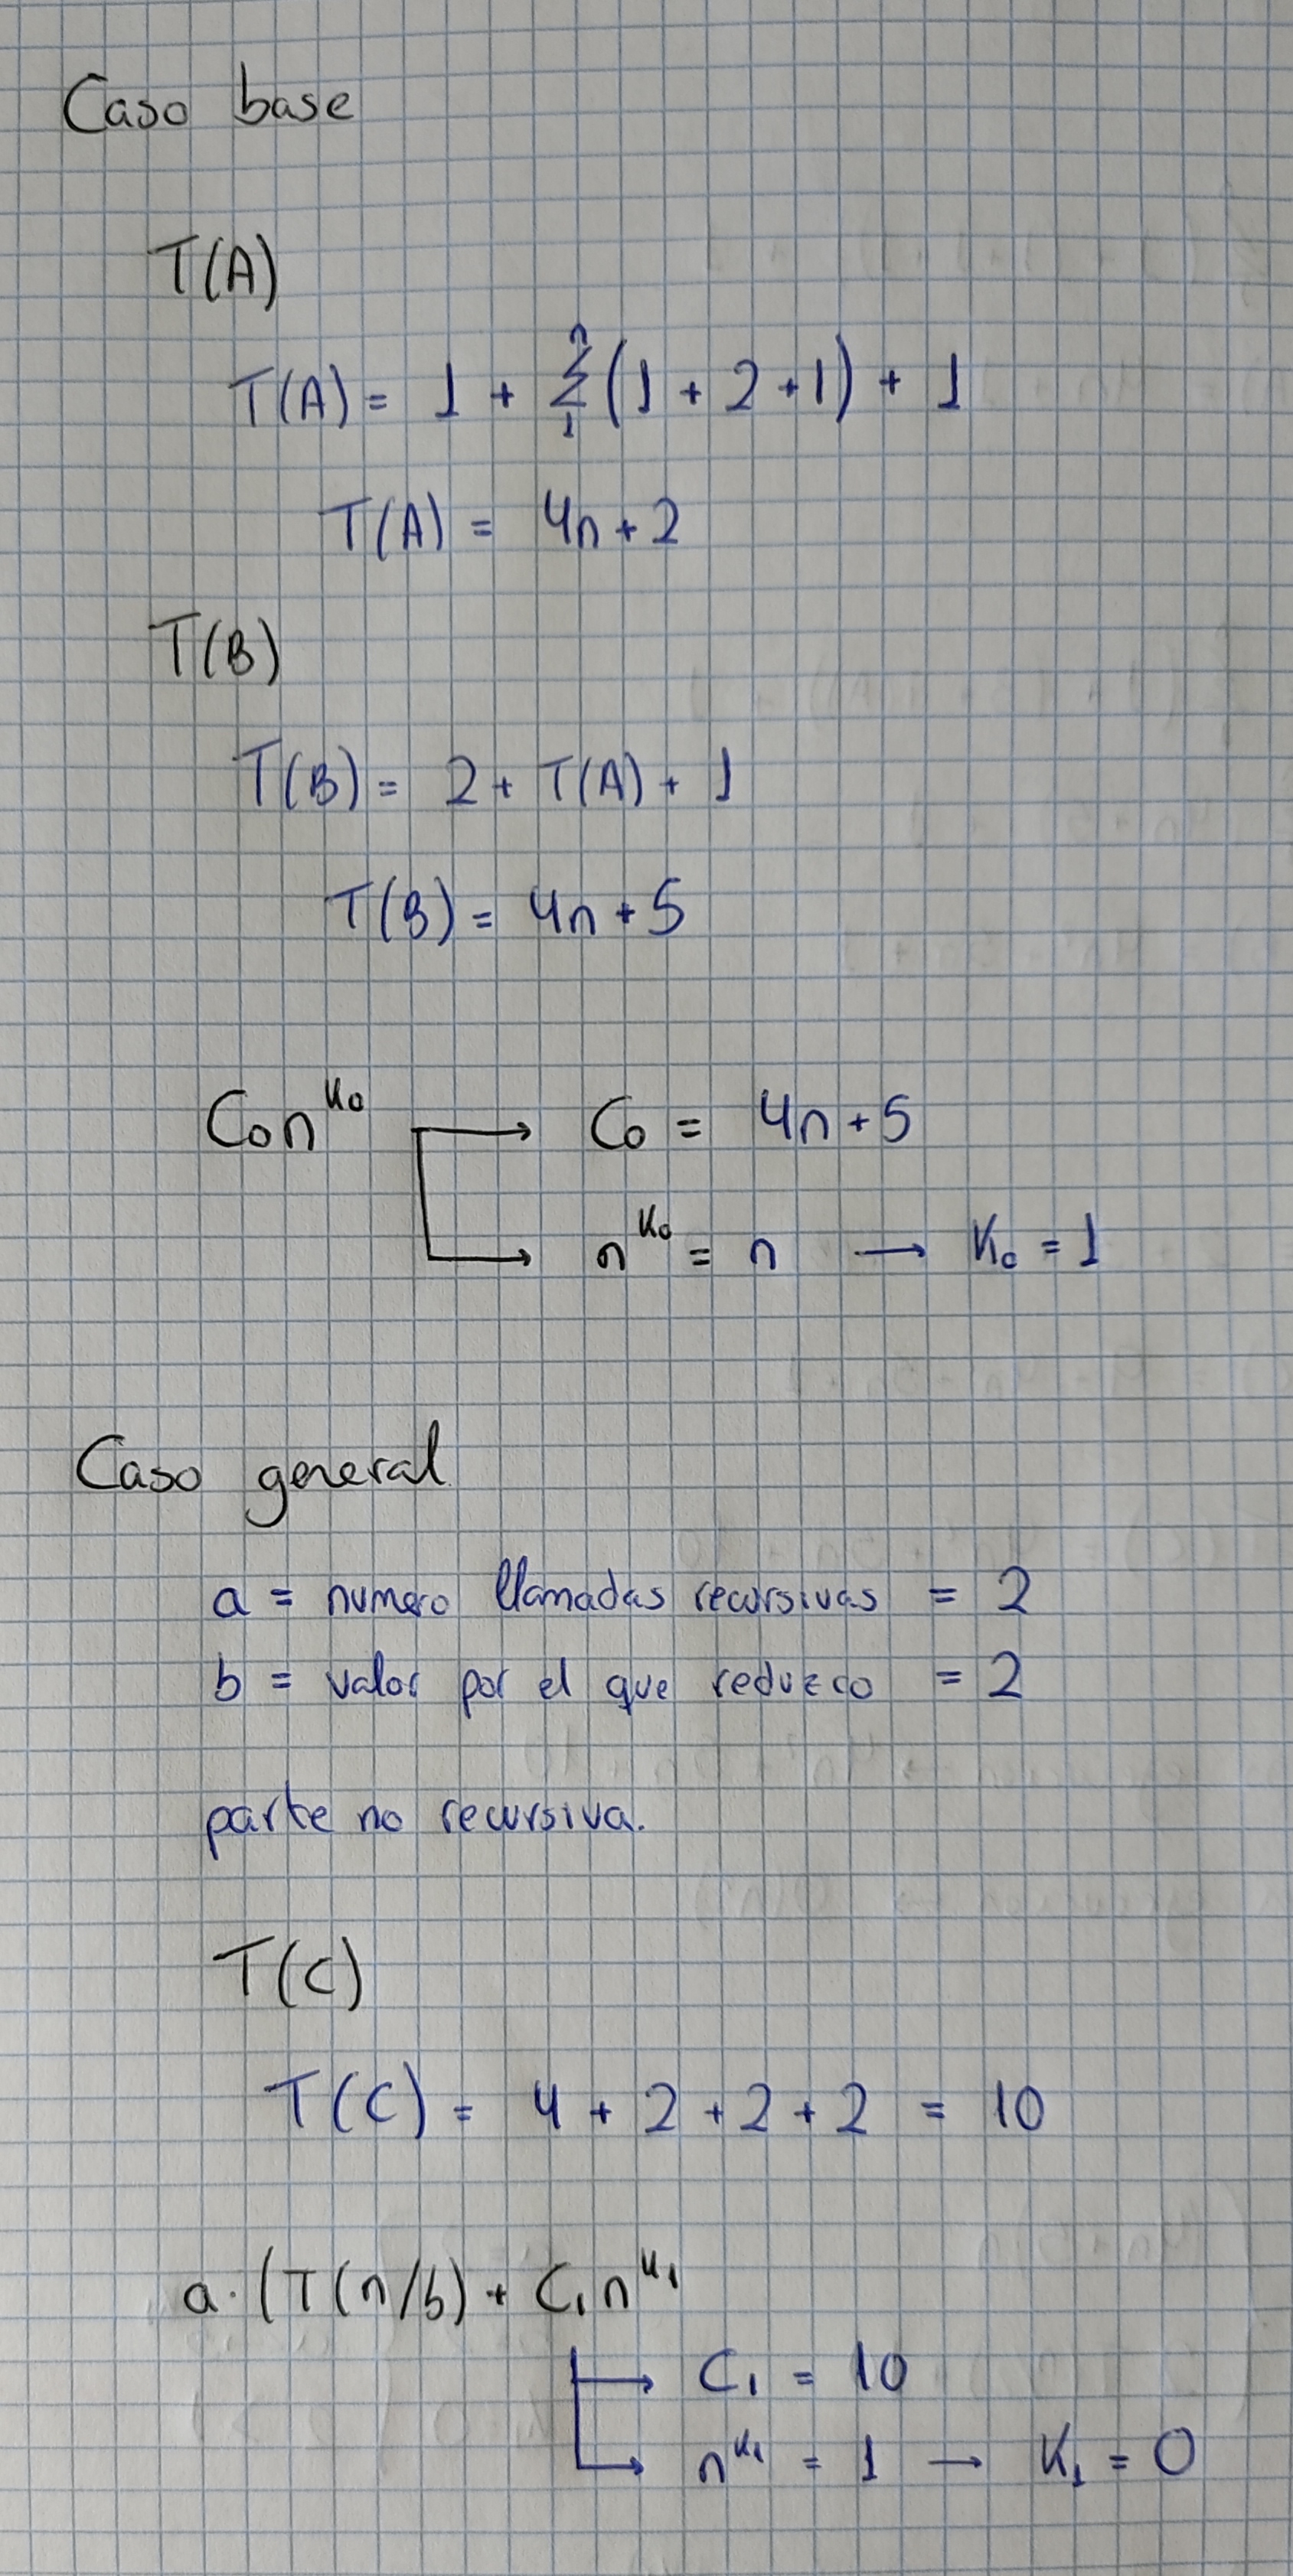 Caso base
T(A)
T(A) = 1 + Σ₁ⁿ (1 + 2 + 1) + 1
T(A) = 4n + 2
T(B)
T(B) = 2 + T(A) + 1
T(B) = 4n + 5
C₀n^K₀ → C₀ = 4n + 5
n^K₀ = n → K₀ = 1
Caso general
a = numero llamadas recursivas = 2
b = valor por el que reduzco = 2
parte no recursiva.
T(C)
T(C) = 4 + 2 + 2 + 2 = 10
a · (T(n/b) + C₁n^K₁
→ C₁ = 10
→ n^K₁ = 1 → K₁ = 0